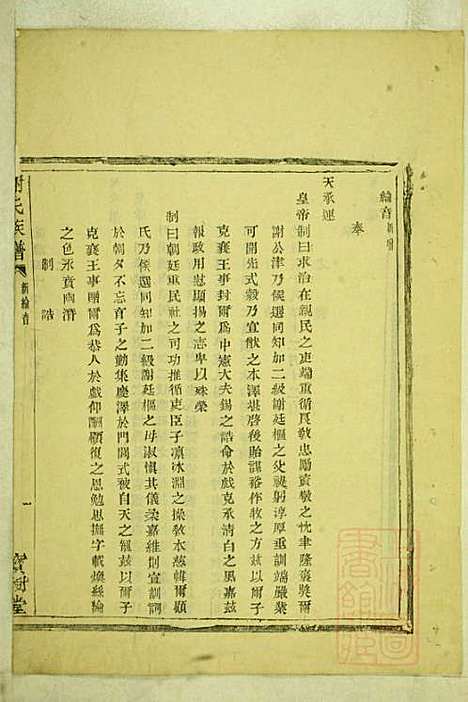 綸音新增
奉
天承運
皇帝制曰求治在親民之吏端重循良敎忠勵資敬之忱聿隆褒奬爾
謝公津乃候選同知加二級謝廷樞之父褆躬淳厚垂訓端嚴業
可開先式穀乃宣猷之本澤堪啓後貽謀裕作牧之方玆以爾子
克襄王事封爾爲中憲大夫錫之誥命於戲克承淸白之風嘉玆
報政用慰顯揚之志畀以殊榮
制曰朝廷重民社之司功推循吏臣子凛冰淵之操敎本慈幃爾顧
氏乃候選同知加二級謝廷樞之母淑愼其儀柔嘉維則宣訓詞
於朝夕不忘育子之勤集慶澤於門閭式被自天之寵玆以爾子
克襄王事贈爾爲恭人於戲仰酬顧復之恩勉思撫字載煥絲綸
之色永賁幽潛
制誥
謝氏族譜
新綸音
一
寶樹堂